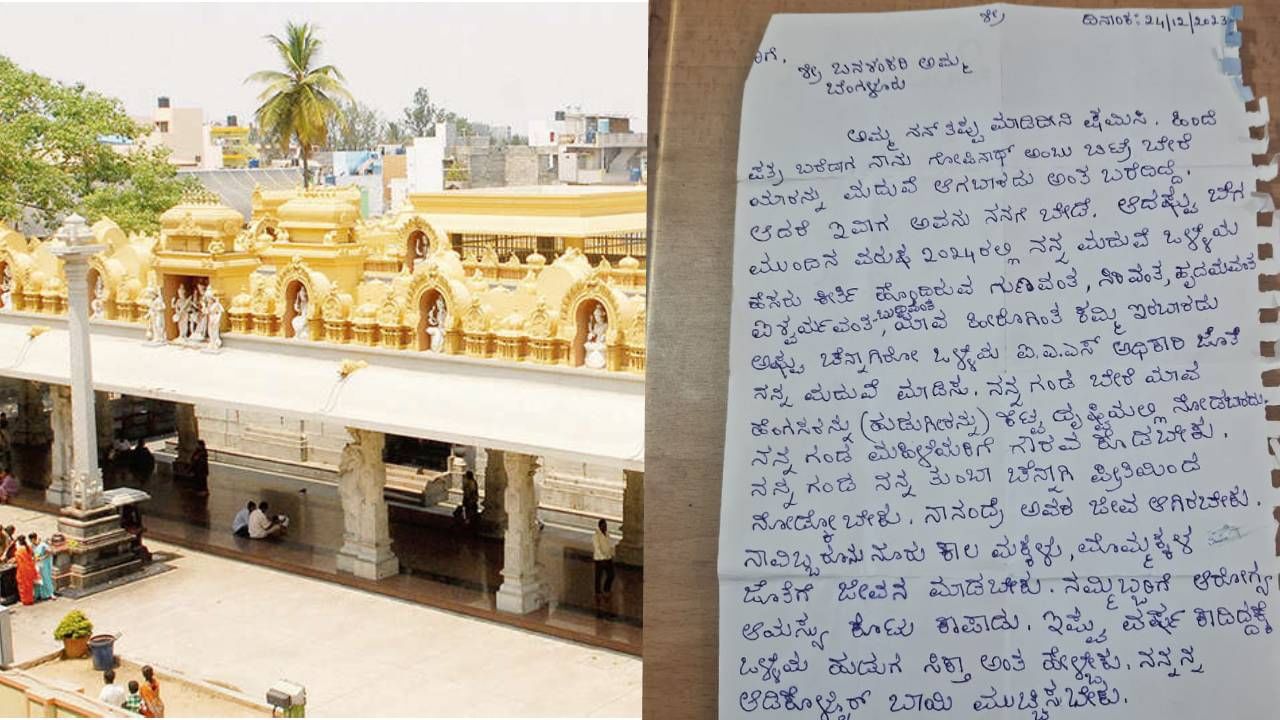 ಶ್ರೀ
ದಿನಾಂಕ: 24/12/2023
ರಿಗೆ,
ಶ್ರೀ ಬನಶಂಕರಿ ಅಮ್ಮ
ಬೆಂಗಳೂರು
ಅಮ್ಮ ನನ್ ತಪ್ಪು ಮಾಡಿದೀನಿ ಕ್ಷಮಿಸಿ. ಹಿಂದೆ
ಪತ್ರ ಬರೆದಾಗ ನಾನು ಗೋಪಿನಾಥ್ ಅಂಬು ಬಿಟ್ರೆ ಬೇರೆ
ಯಾರನ್ನು ಮದುವೆ ಆಗಬಾರದು ಅಂತ ಬರೆದಿದ್ದೆ.
ಆದರೆ ಇವಾಗ ಅವನು ನನಗೆ ಬೇಡ. ಆದಷ್ಟು ಬೇಗ
ಮುಂದಿನ ವರುಷ 2024ರಲ್ಲಿ ನನ್ನ ಮದುವೆ ಒಳ್ಳೆಯ
ಹೆಸರು ಕೀರ್ತಿ ಹೊಂದಿರುವ ಗುಣವಂತ, ಹೃದಯವಂತ
ಬುದ್ಧಿವಂತ
ಐಶ್ವರ್ಯವಂತ, ಯಾವ ಹೀರೊಗಿಂತ ಕಮ್ಮಿ ಇರಬಾರದು
ಅಷ್ಟು ಚೆನ್ನಾಗಿರೋ ಒಳ್ಳೆಯ ಐ.ಎ.ಎಸ್ ಅಧಿಕಾರಿ ಜೊತೆ
ನನ್ನ ಮದುವೆ ಮಾಡಿಸು. ನನ್ನ ಗಂಡ ಬೇರೆ ಯಾವ
ಹೆಂಗಸರನ್ನು (ಹುಡುಗೀರನ್ನು) ಕೆಟ್ಟ ದೃಷ್ಟಿಯಲ್ಲಿ ನೋಡಬಾರದು.
ನನ್ನ ಗಂಡ ಮಹಿಳೆಯರಿಗೆ ಗೌರವ ಕೊಡಬೇಕು.
ನನ್ನ ಗಂಡ ನನ್ನ ತುಂಬಾ ಚೆನ್ನಾಗಿ ಪ್ರೀತಿಯಿಂದ
ನೋಡ್ಕೋಬೇಕು. ನಾನಂದ್ರೆ ಅವರ ಜೀವ ಆಗಿರಬೇಕು.
ನಾವಿಬ್ಬರೂ ನೂರು ಕಾಲ ಮಕ್ಕಳು, ಮೊಮ್ಮಕ್ಕಳ
ಜೊತೆಗೆ ಜೀವನ ಮಾಡಬೇಕು. ನಮ್ಮಿಬ್ಬರಿಗೆ ಆರೋಗ್ಯ
ಆಯಸ್ಸು ಕೊಟ್ಟು ಕಾಪಾಡು. ಇಷ್ಟು ವರ್ಷ ಕಾದಿದ್ದಕ್ಕೆ
ಒಳ್ಳೆಯ ಹುಡುಗ ಸಿಕ್ತಾ ಅಂತ ಹೇಳ್ಬೇಕು. ನನ್ನನ್ನ
ಆಡಿಕೊಳ್ಳೋರ್ ಬಾಯಿ ಮುಚ್ಚಿಸಬೇಕು.